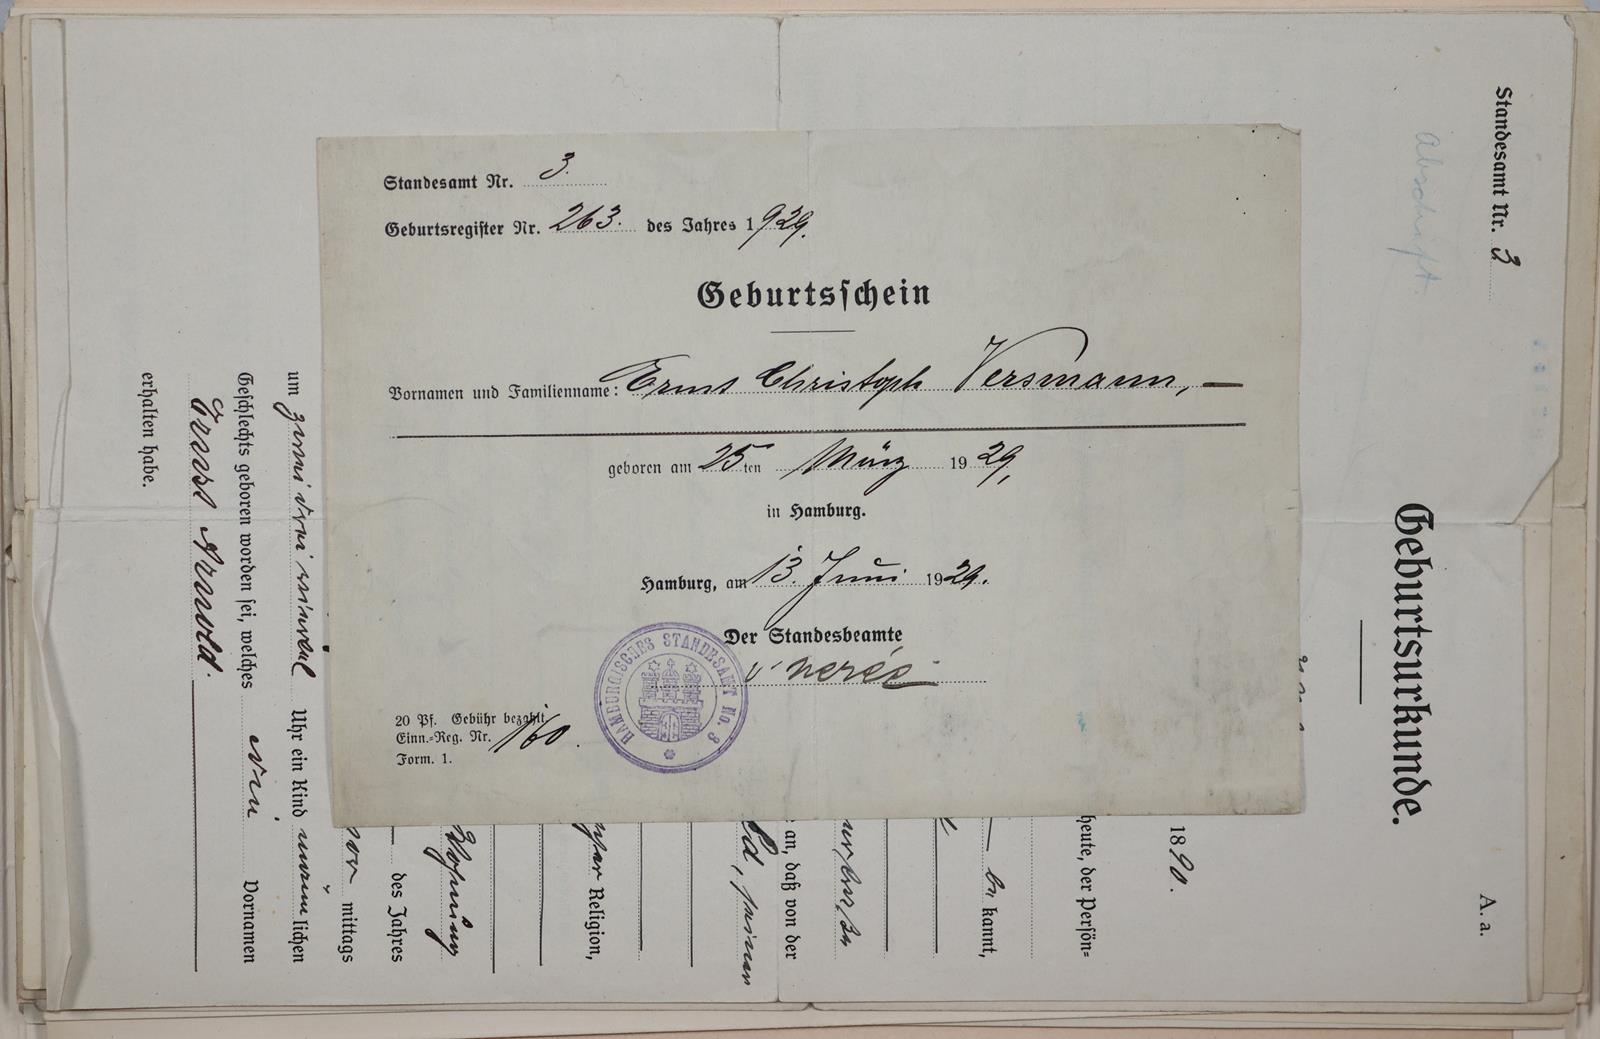 Standesamt Nr. 3.
Geburtsregister Nr. 263. des Jahres 1929.
Geburtsschein
Vornamen und Familienname: Ernst Christoph Versmann,
geboren am 25ten März 1929,
in Hamburg.
Hamburg, am 13. Juni 1929.
Der Standesbeamte
HAMBURGISCHES STANDESAMT No. 3
20 Pf. Gebühr bezahlt
Einn.-Reg. Nr. 160.
Form. 1.
A. a.
Standesamt Nr. 3
Abschrift.
Geburtsurkunde.
1890.
heute, der Persön-
kannt,
an, daß von der
Religion,
Wohnung
des Jahres
mittags
um zwei drei viertel Uhr ein Kind männlichen
Geschlechts geboren worden sei, welches die Vornamen
Ernst Arnold.
erhalten habe.